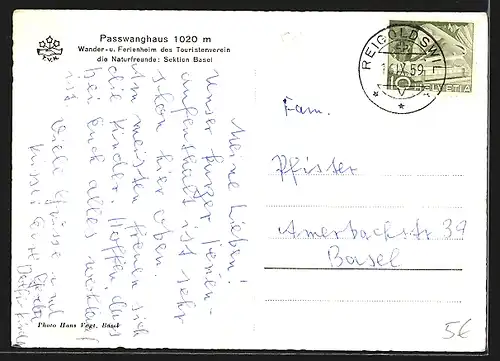 Passwanghaus 1020 m
Wander- u. Ferienheim des Touristenverein
die Naturfreunde: Sektion Basel
REIGOLDSWIL
IX. 59
10
HELVETIA
Meine Lieben!
Unser kurzer Ferien-
aufenthalt ist sehr
schön hier oben.
Am meisten freuen sich
die Kinder. Hoffen, dass
bei Euch alles wohlauf
ist. Viele Grüsse und
Küsse Eure
Fam.
Pfister
Amerbachstr 37
Basel
Photo Hans Vogt, Basel
5€